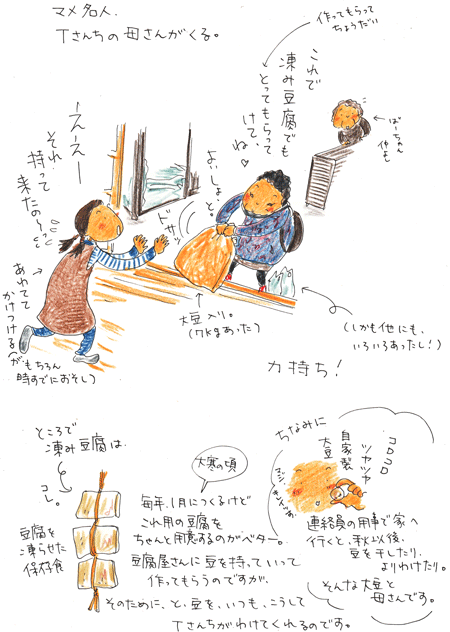 マメ名人、
Tさんちの母さんがくる。
作ってもらって
ちょうだい
これで
凍み豆腐でも
とってもらって
けて、
ね♡
ばーちゃん
仲も
えーえー
それ
持って
来たの〜っ
よいしょと。
ドサッ
あわてて
かけつける
(がもちろん
時すでにおそし)
大豆入り。
(7kgあった)
(しかも他にも、
いろいろあったし!)
力持ち!
ところで
凍み豆腐は、
コレ。
豆腐を
凍らせた
保存食
大寒の頃
毎年、1月につくるけど
これ用の豆腐を
ちゃんと用意するのがベター。
豆腐屋さんに豆を持っていって
作ってもらうのですが、
そのために、と、豆を、いつも、こうして
Tさんちがわけてくれるのです。
ちなみに
コロコロ
ツヤツヤ
自家製
大豆。
連絡員の用事で家へ
行くと、秋以後、
豆を干したり、
よりわけたり。
そんな大豆と
母さんです。